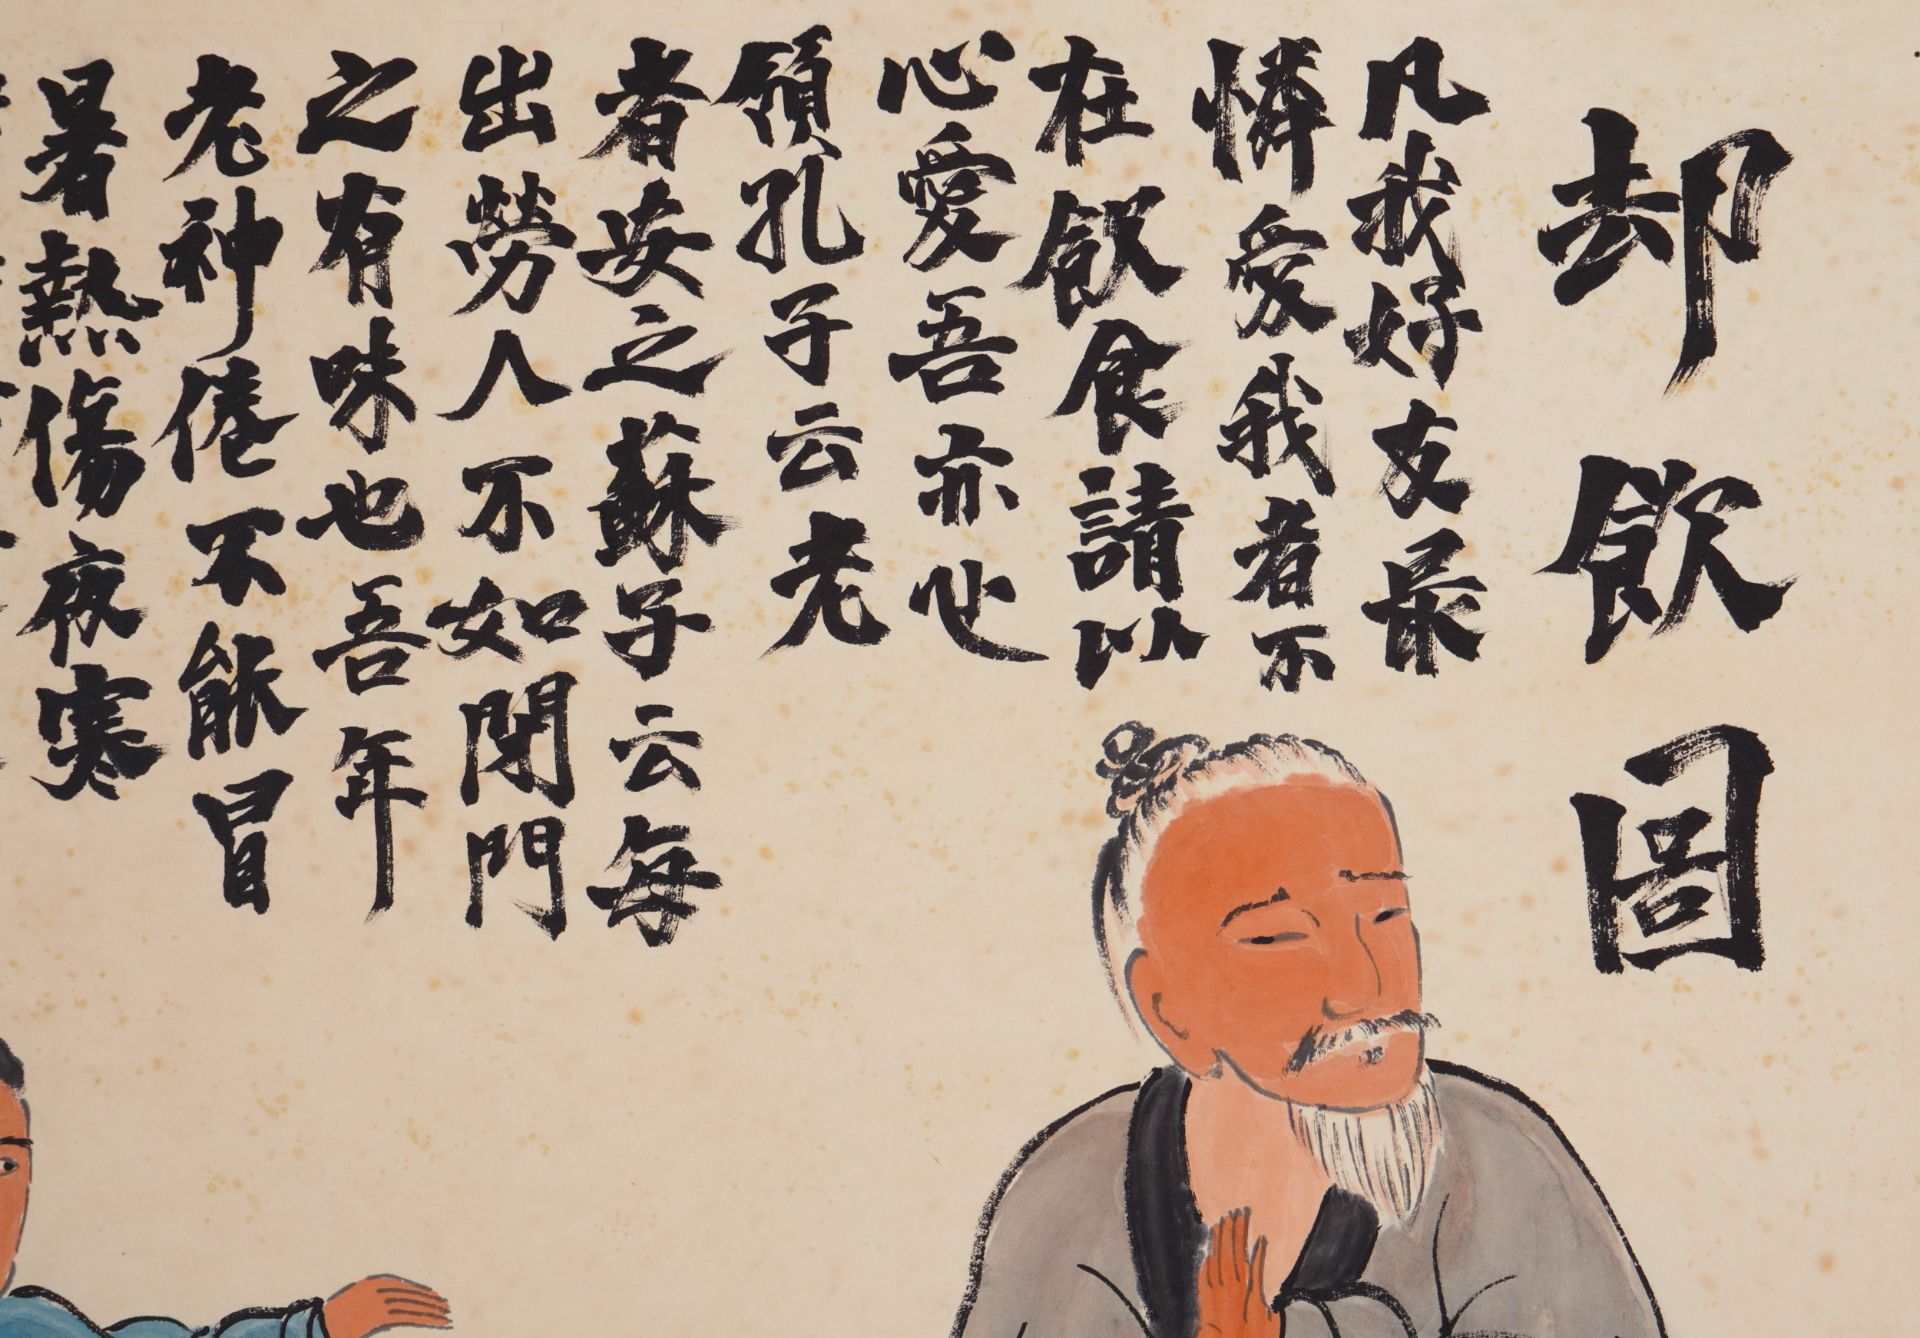 却飲圖
凡我好友最
憐愛我者不
在飲食請以
心愛吾亦心
領孔子云老
者安之蘇子云每
出勞人不如閉門
之有味也吾年
老神倦不能冒
暑熱傷夜寒